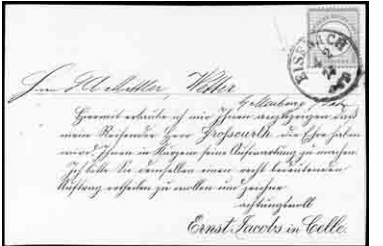 EISENACH
Herrn Mettler, Wetter
b/ Marburg
Hiermit erlaube ich mir Ihnen anzuzeigen daß
mein Reisender Herr Großcurth die Ehre haben
wird, Ihnen in Kürzem seine Aufwartung zu machen.
Ich bitte Sie demselben einen recht bedeutenden
Auftrag ertheilen zu wollen und zeichne
achtungsvoll
Ernst Jacobs in Celle.